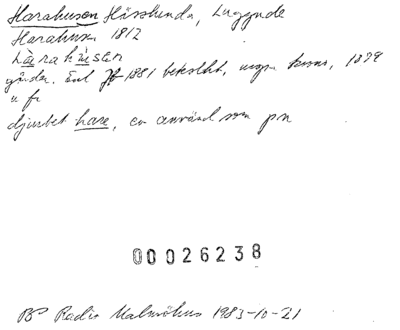 Harahusen Hässlunda, Luggude
Harahusen 1812
hàrahùsen
gårdar. Enl JB 1881 bebodda, 1879
u fr
djuret hare, ev använd som pn
00026238
BP Radio Malmöhus 1983-10-21